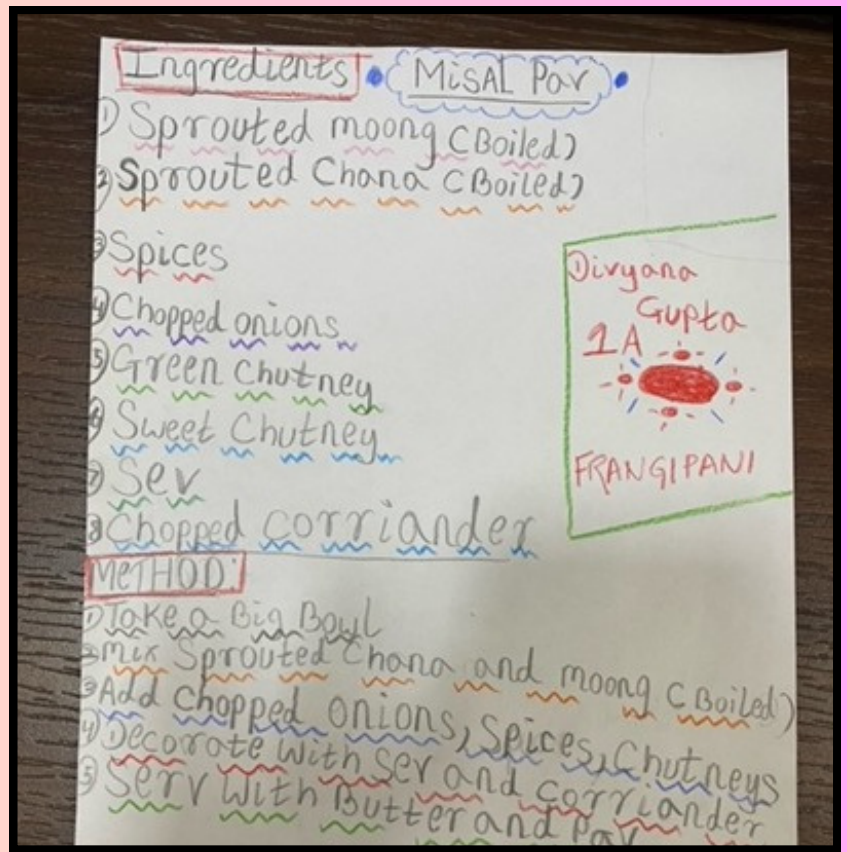 Ingredients
MiSAL Pav
① Sprouted moong (Boiled)
② Sprouted Chana (Boiled)
③ Spices
④ Chopped onions
⑤ Green Chutney
⑥ Sweet Chutney
⑦ Sev
⑧ Chopped corriander
Divyana
Gupta
1A
FRANGIPANI
METHOD:
① Take a Big Bowl
② Mix Sprouted Chana and moong (Boiled)
③ Add Chopped onions, Spices, Chutneys
④ Decorate with Sev and corriander
⑤ Serv With Butter and Pav